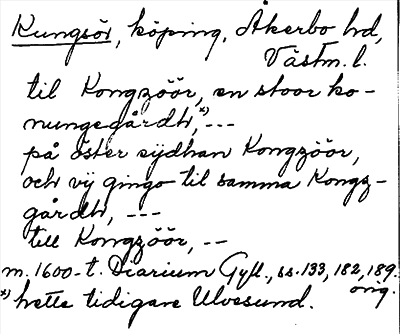 Kungsör, köping, Åkerbo hd,
Västm. l.
til Kongzöör, en stoor ko-
nungegårdh, x) ---
på öster sijdhan Kongzöör,
och vij gingo til samma Kongz-
gårdh, ---
till Kongzöör, --
m. 1600-t. Diarium Gyll., ss. 133, 182, 189.
orig.
x) hette tidigare Ulvesund.